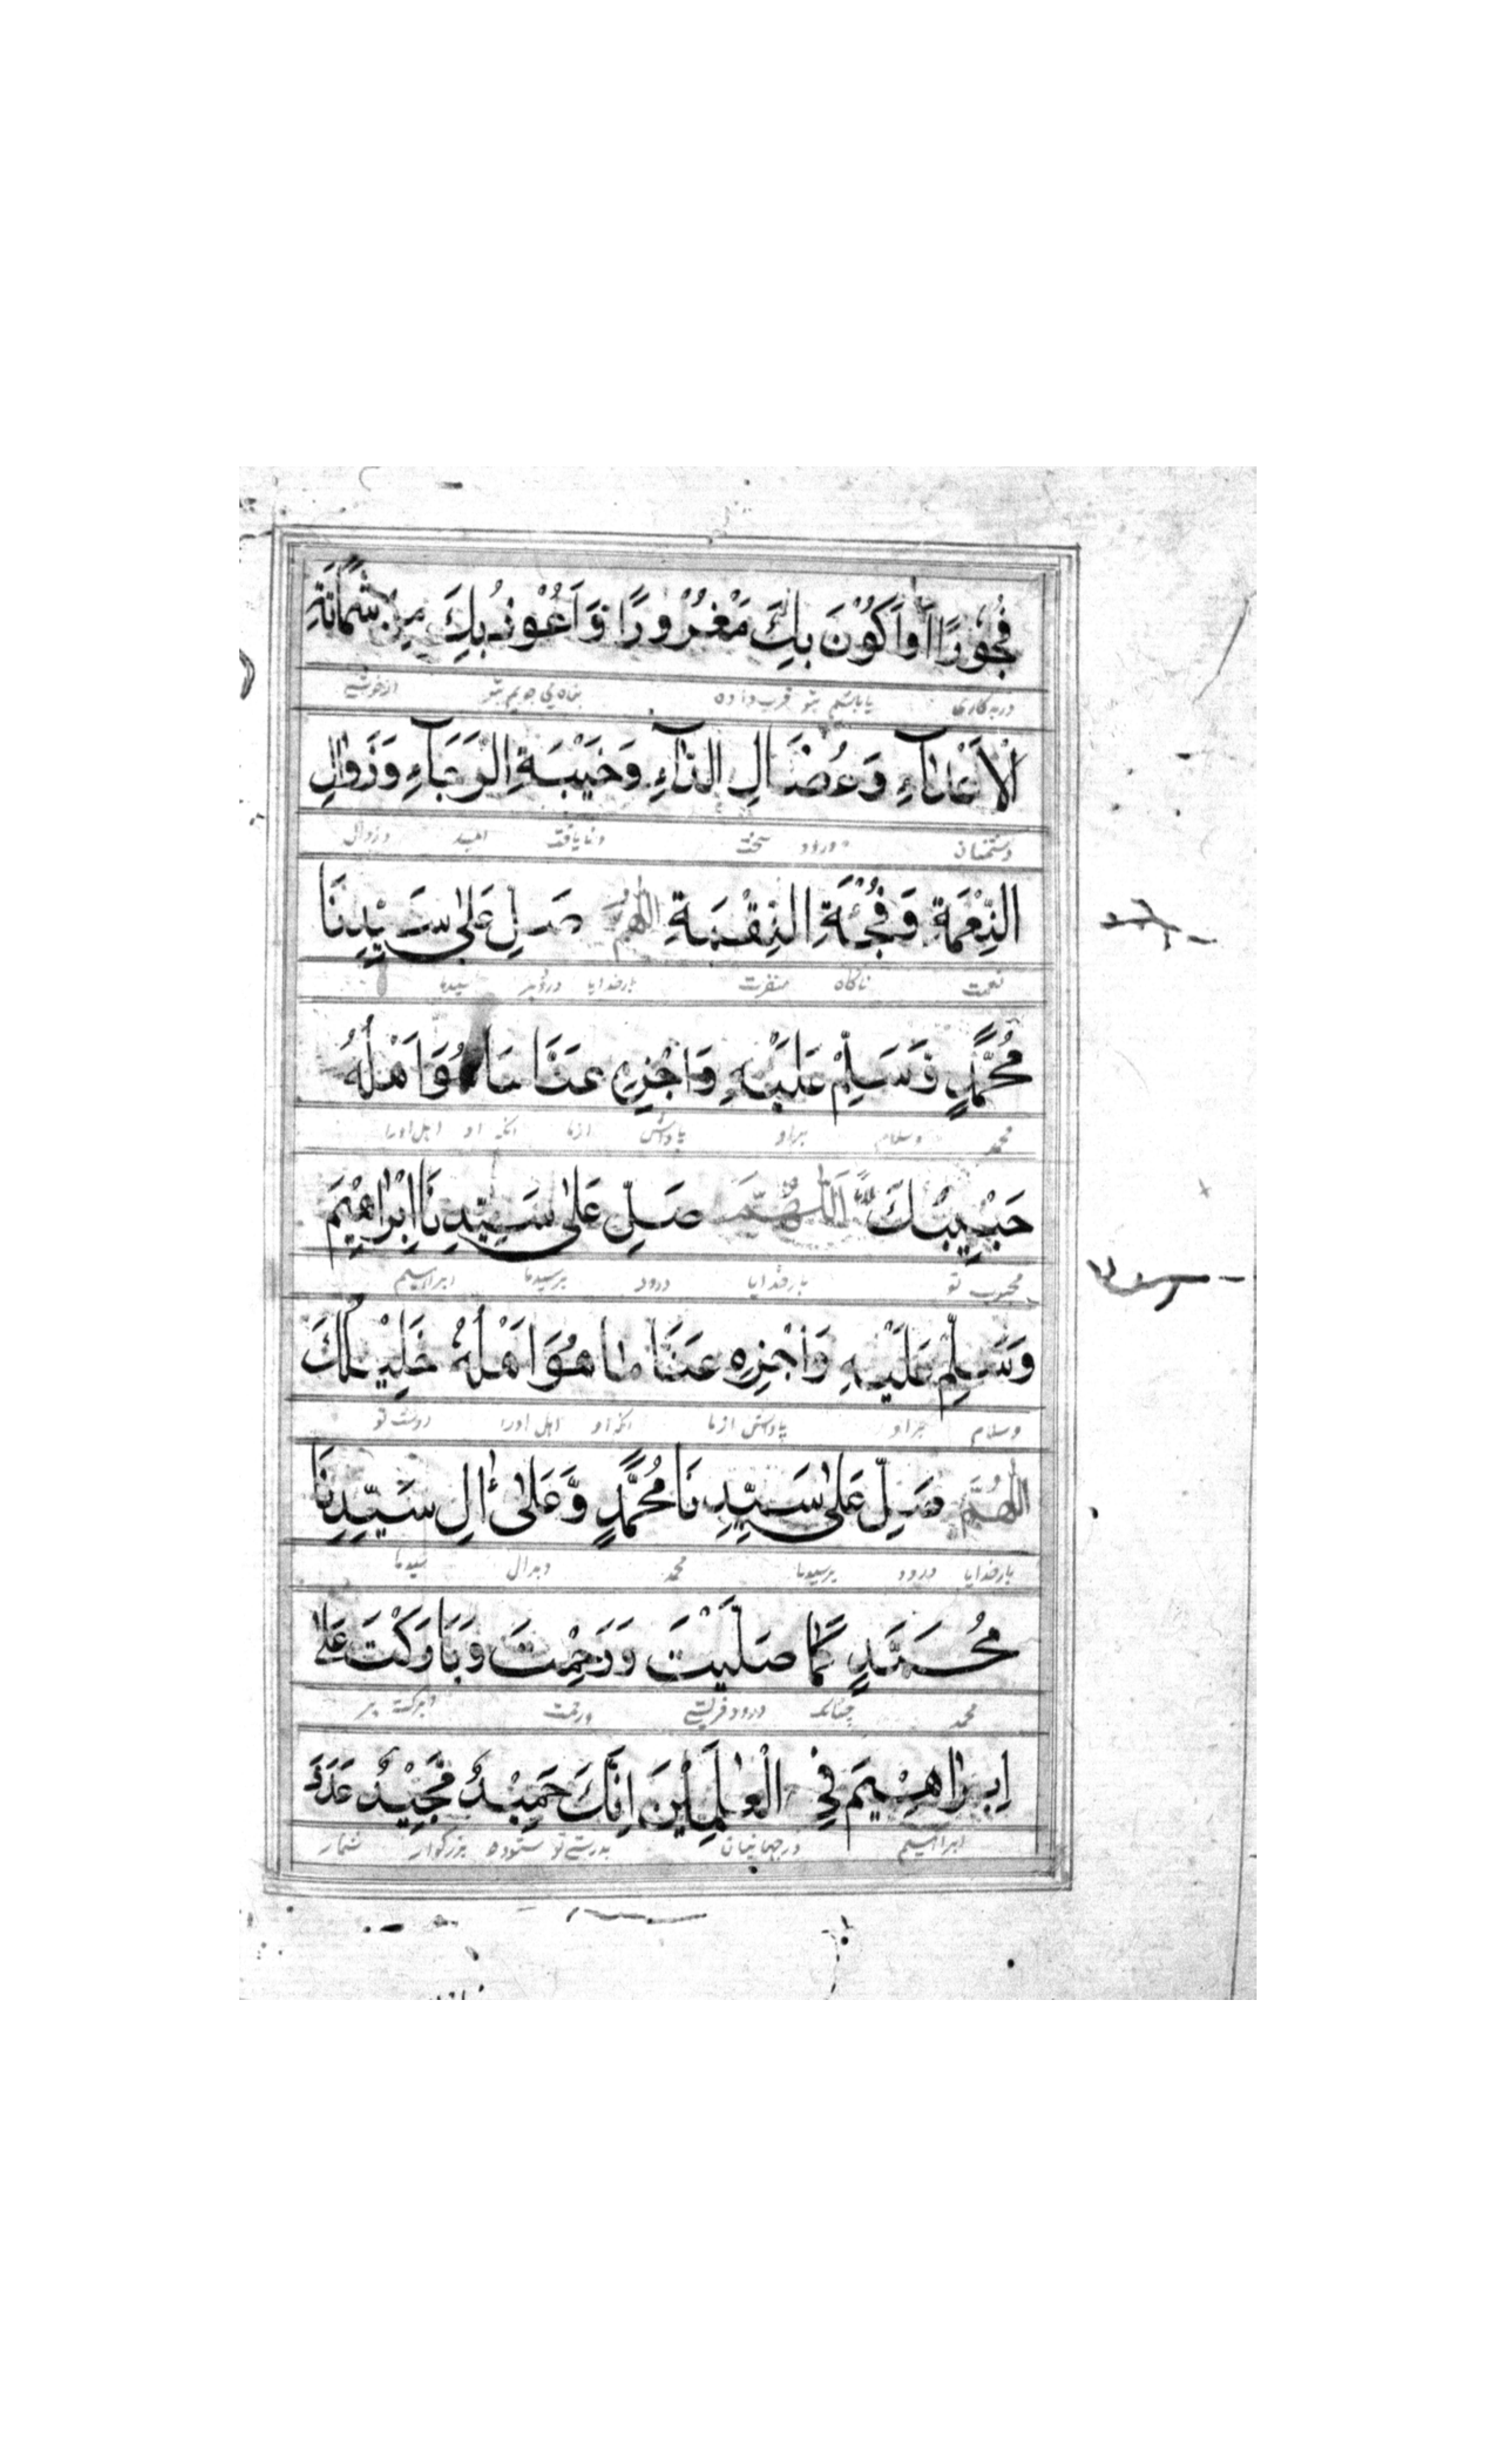 فُجُوْرًا اَوْ اَكُوْنَ بِكَ مَغْرُوْرًا وَّاَعُوْذُ بِكَ مِنْ شَمَاتَةِ
دربدکاری یا باشم بتو فریب داده پناه می جویم بتو از خوشی
الْاَعْدَآءِ وَعُضَالِ الدَّآءِ وَخَيْبَةِ الرَّجَآءِ وَزَوَالِ
دشمنان ودرد سخت ونایافت امید وزوال
النِّعْمَةِ وَفُجْئَةِ النِّقْمَةِ اللّٰهُمَّ صَلِّ عَلٰى سَيِّدِنَا
نعمت ناگاه بارخدایا درود بر سیدنا
مُحَمَّدٍ وَّسَلِّمْ عَلَيْهِ وَاجْزِهِ عَنَّا مَا هُوَ اَهْلُهٗ
محمد وسلام براو پاداش ازما آنکه او اهل اورا
حَبِيْبُكَ اَللّٰهُمَّ صَلِّ عَلٰى سَيِّدِنَا اِبْرَاهِيْمَ
محبوب تو بارخدایا درود برسیدنا ابراهیم
وَسَلِّمْ عَلَيْهِ وَاجْزِهِ عَنَّا مَا هُوَ اَهْلُهٗ خَلِيْلُكَ
وسلام براو پاداش ازما آنکه او اهل اورا دوست تو
اَللّٰهُمَّ صَلِّ عَلٰى سَيِّدِنَا مُحَمَّدٍ وَّعَلٰى اٰلِ سَيِّدِنَا
بارخدایا درود برسیدنا محمد وبرال سیدنا
مُحَمَّدٍ كَمَا صَلَّيْتَ وَرَحِمْتَ وَبَارَكْتَ عَلٰى
محمد چنانکه درود فرستی ورحمت وبرکت بر
اِبْرَاهِيْمَ فِي الْعٰلَمِيْنَ اِنَّكَ حَمِيْدٌ مَّجِيْدٌ عَدَدَ
ابراهیم درجهانیان بدرستی تو ستوده بزرگوار شمار